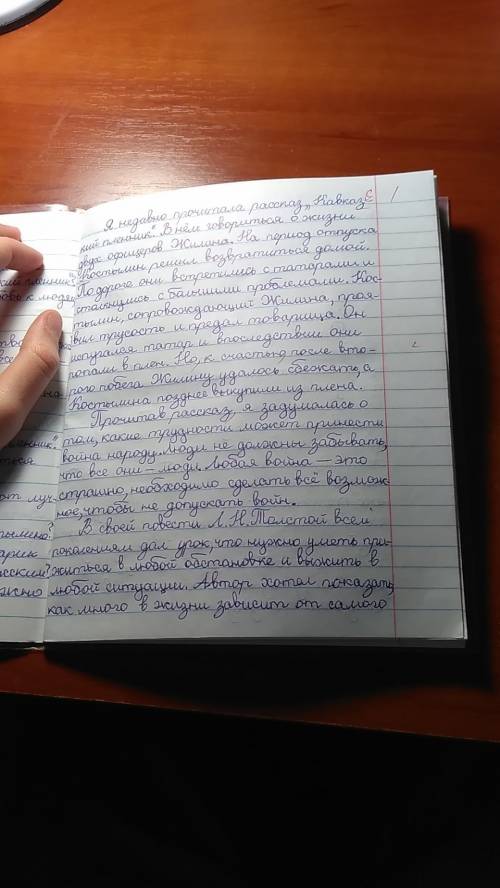 Я недавно прочитала рассказ „Кавказс
кий пленник". В нём говориться о жизни
двух офицеров Жилина. На период отпуска
Костылин решил возвратиться домой.
По дороге они встретились с татарами и
столкнулись с большими проблемами. Кос-
тылин, сопровождающий Жилина, проя-
вил трусость и предал товарища. Он
испугался татар и впоследствии они
попали в плен. Но, к счастью, после вто-
рого побега Жилину удалось сбежать, а
Костылина позднее выкупили из плена.
Прочитав рассказ, я задумалась о
том, какие трудности может принести
война народу. Люди не должны забывать,
что все они – люди. Любая война – это
страшно, необходимо сделать всё возмож-
ное, чтобы не допускать войн.
В своей повести Л.Н.Толстой всем
поколениям дал урок, что нужно уметь при-
житься в любой обстановке и выжить в
любой ситуации. Автор хотел показать,
как много в жизни зависит от самого